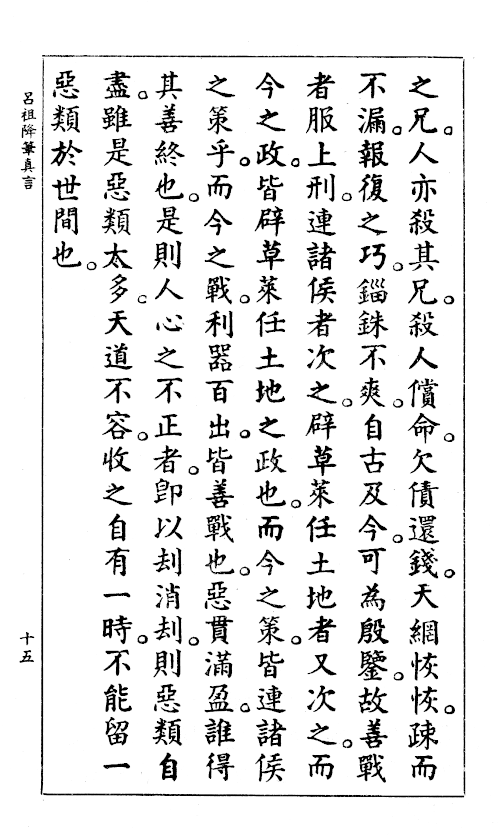 之兄。人亦殺其兄。殺人償命。欠債還錢。天網恢恢。疎而
不漏。報復之巧。錙銖不爽。自古及今。可為殷鑒。故善戰
者服上刑。連諸侯者次之。辟草萊任土地者又次之。而
今之政。皆辟草萊任土地之政也。而今之策。皆連諸侯
之策乎。而今之戰。利器百出。皆善戰也。惡貫滿盈。誰得
其善終也。是則人心之不正者。即以刦消刦。則惡類自
盡。雖是惡類太多。天道不容。收之自有一時。不能留一
惡類於世間也。
呂祖降筆真言
十五